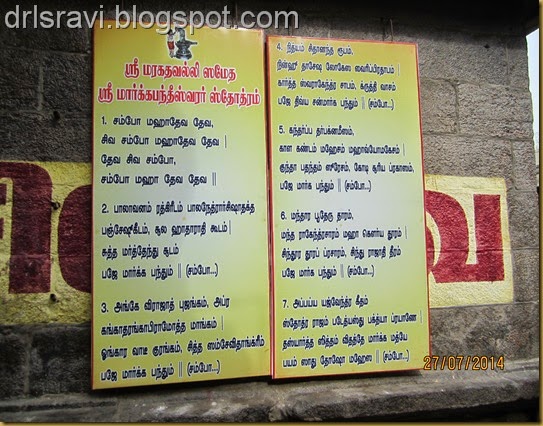 drlsravi.blogspot.com
ஸ்ரீ மரகதவல்லி ஸமேத
ஸ்ரீ மார்க்கபந்தீஸ்வரர் ஸ்தோத்ரம்
1. சம்போ மஹாதேவ தேவ,
சிவ சம்போ மஹாதேவ தேவ |
தேவ சிவ சம்போ,
சம்போ மஹா தேவ தேவ ||
2. பாலாவனம் ரத்கிரீடம் பாலநேத்ரார்சிஷாதக்த
பஞ்சேஷுகீடம், சூல ஹாதாராதி கூடம் |
சுத்த மர்த்தேந்து சூடம்
பஜே மார்க்க பந்தும் || (சம்போ...)
3. அங்கே விராஜாத் புஜங்கம், அப்ர
கங்காதரங்காபிராமோத்த மாங்கம் |
ஓங்கார வாடீ குரங்கம், சித்த ஸம்சேவிதாங்க்ரீம்
பஜே மார்க்க பந்தும் || (சம்போ...)
4. நித்யம் சிதானந்த ரூபம்,
நின்ஹீ தாசேஷ லோகேஸ வைரிப்பிரதாபம் |
கார்த்த ஸ்வராகேந்த்ர சாபம், க்ருத்தி வாசம்
பஜே திவ்ய சன்மார்க பந்தும் || (சம்போ...)
5. கந்தர்ப்ப தர்பக்னமீஸம்,
கால கண்டம் மஹேசம் மஹாவ்யோமகேசம் |
குந்தா பதந்தம் ஸுரேசம், கோடி சூரிய ப்ரகாஸம்,
பஜே மார்க பந்தும் || (சம்போ...)
6. மந்தார பூதேரு தாரம்,
மந்த ராகேந்த்ரசாரம் மஹா கௌர்ய தூரம் |
சிந்தூர தூரப் ப்ரசாரம், சிந்து ராஜாதி தீரம்
பஜே மார்க பந்தும் || (சம்போ...)
7. அப்பய்ய யஜ்வேந்த்ர கீதம்
ஸ்தோத்ர ராஜம் படேத்யஸ்து பக்த்யா ப்ரயாணே |
தஸ்யார்த்த ஸித்தம் விதத்தே மார்க்க மத்யே
பயம் ஸாது தோஷோ மஹேஸ || (சம்போ...)
27/07/2014